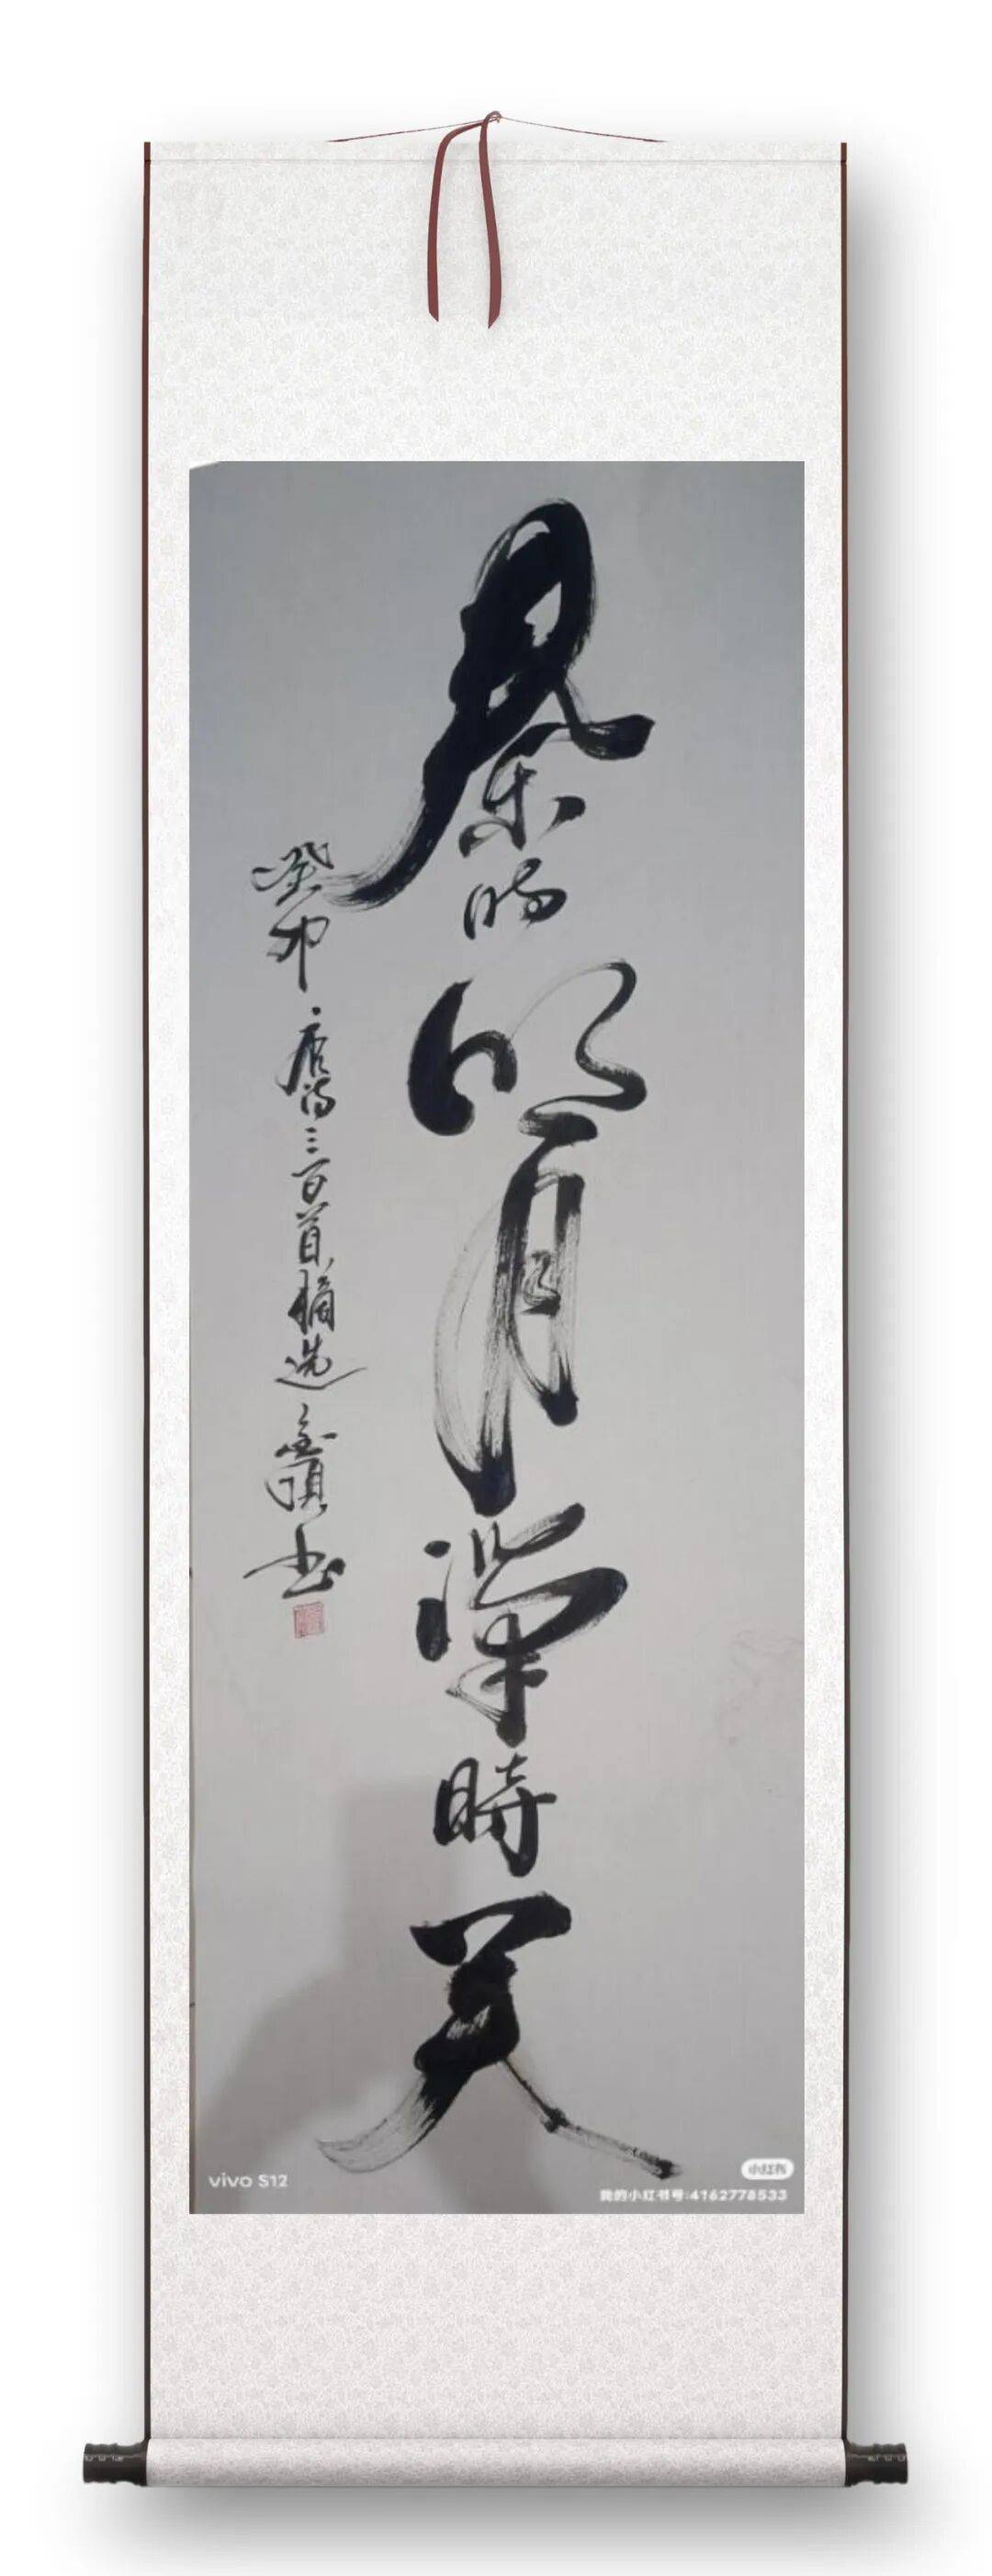 秦时明月漢時关
癸卯唐诗三百首摘选金顺书
vivo S12
小红书
我的小红书号:4162778533